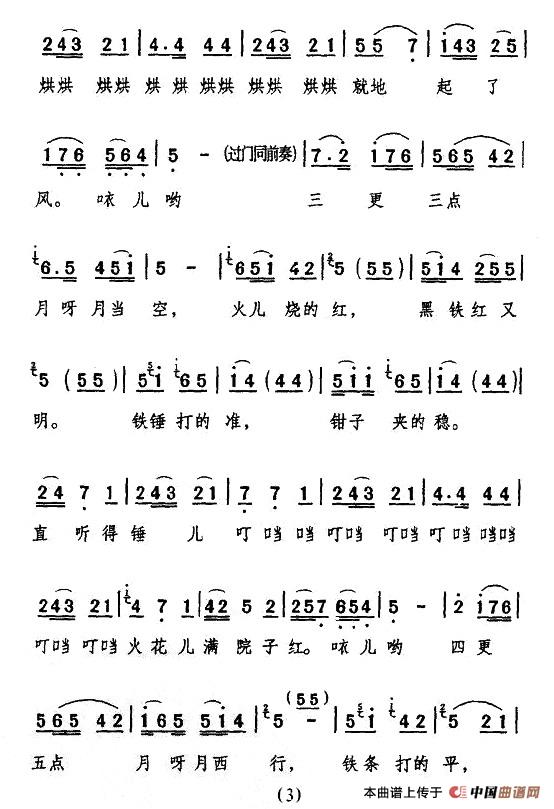 243 21 | 4.4 44 | 243 21 | 55 7 | 143 25 |
烘烘 烘烘 烘 烘 烘烘 烘烘 烘烘 就地 起 了
176 564 | 5 - (过门同前奏) | 7.2 176 | 565 42 |
风。 咴 儿 哟 三 更 三点
6.5 451 | 5 - | 651 42 | 5 (55) | 514 255 |
月呀 月当 空, 火儿 烧的 红, 黑 铁 红 又
5 (55) | 51 65 | 14 (44) | 511 65 | 14 (44) |
明。 铁锤 打的 准, 钳子 夹的 稳。
24 7 1 | 243 21 | 7 7 1 | 243 21 | 4.4 44 |
直 听 得 锤 儿 叮 当 当 叮当 叮当 叮 当 当当
243 21 | 4 7 1 | 42 5 2 | 257 654 | 5 - | 2 176 |
叮当 叮当 火 花 儿 满 院 子 红。 咴 儿 哟 四 更
(55)
565 42 | 165 514 | 5 - | 51 42 | 5 21 |
五点 月 呀 月西 行, 铁条 打的 平,
(3)
本曲谱上传于 中国曲谱网